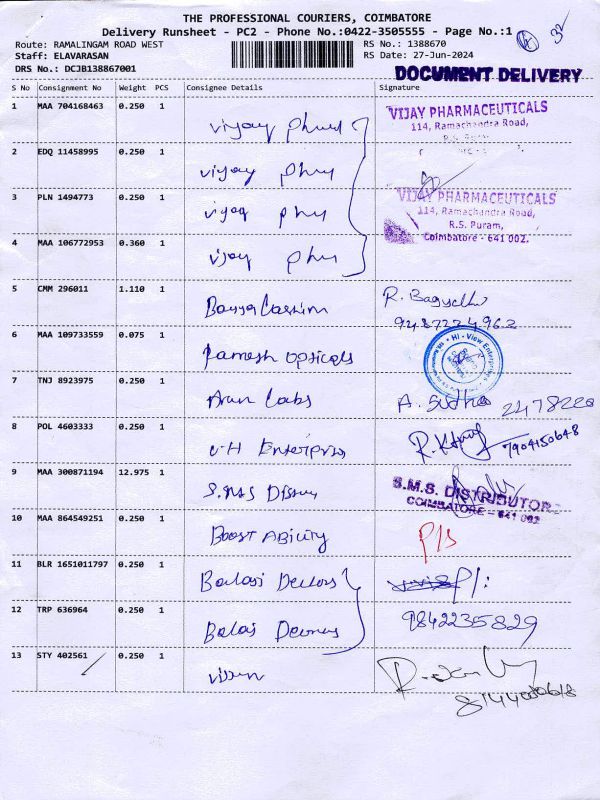 THE PROFESSIONAL COURIERS, COIMBATORE
Delivery Runsheet - PC2 - Phone No.:0422-3505555 - Page No.:1
32
Route: RAMALINGAM ROAD WEST RS No.: 1388670
Staff: ELAVARASAN RS Date: 27-Jun-2024
DRS No.: DCJB138867001
DOCUMENT DELIVERY
S No Consignment No Weight PCS Consignee Details Signature
1 MAA 704168463 0.250 1 vijay
VIJAY PHARMACEUTICALS
114, Ramachandra Road,
2 EDQ 11458995 0.250 1 vijay
3 PLN 1494773 0.250 1 vijay
VIJAY PHARMACEUTICALS
114, Ramachandra Road,
R.S. Puram,
Coimbatore - 641 002.
4 MAA 106772953 0.360 1 vijay
5 CMM 296011 1.110 1 R.
6 MAA 109733559 0.075 1 Ramesh opticals
Hi - View Enterprises
7 TNJ 8923975 0.250 1 Arun Labs A. Sudha
8 POL 4603333 0.250 1 7904150648
9 MAA 300871194 12.975 1 S.M.S
S.M.S. DISTRIBUTOR
COIMBATORE - 641 002
10 MAA 864549251 0.250 1 Boost Ability P/S
11 BLR 1651011797 0.250 1
12 TRP 636964 0.250 1 9842235829
13 STY 402561 0.250 1